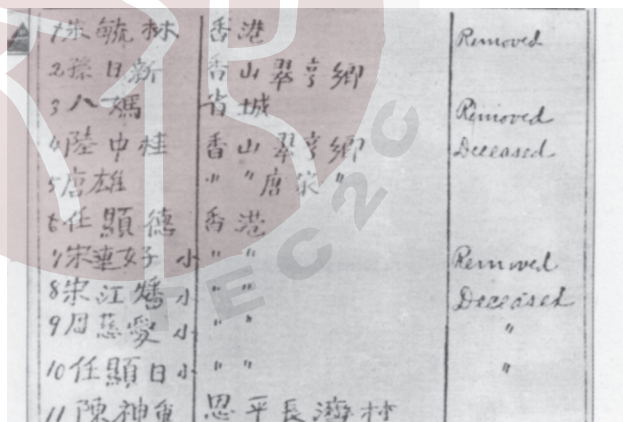 1 宋毓林 香港 Removed
2 孫日新 香山翠亨鄉
3 八媽 省城 Removed
4 陸中桂 香山翠亨鄉 Deceased
5 唐雄 " " 唐家 "
6 任顯德 香港
7 宋連好 小 " " Removed
8 宋江嬌 小 " " Deceased
9 周慈愛 小 " " "
10 任顯日 小 " " "
11 陳神 恩平長 村
EC2C